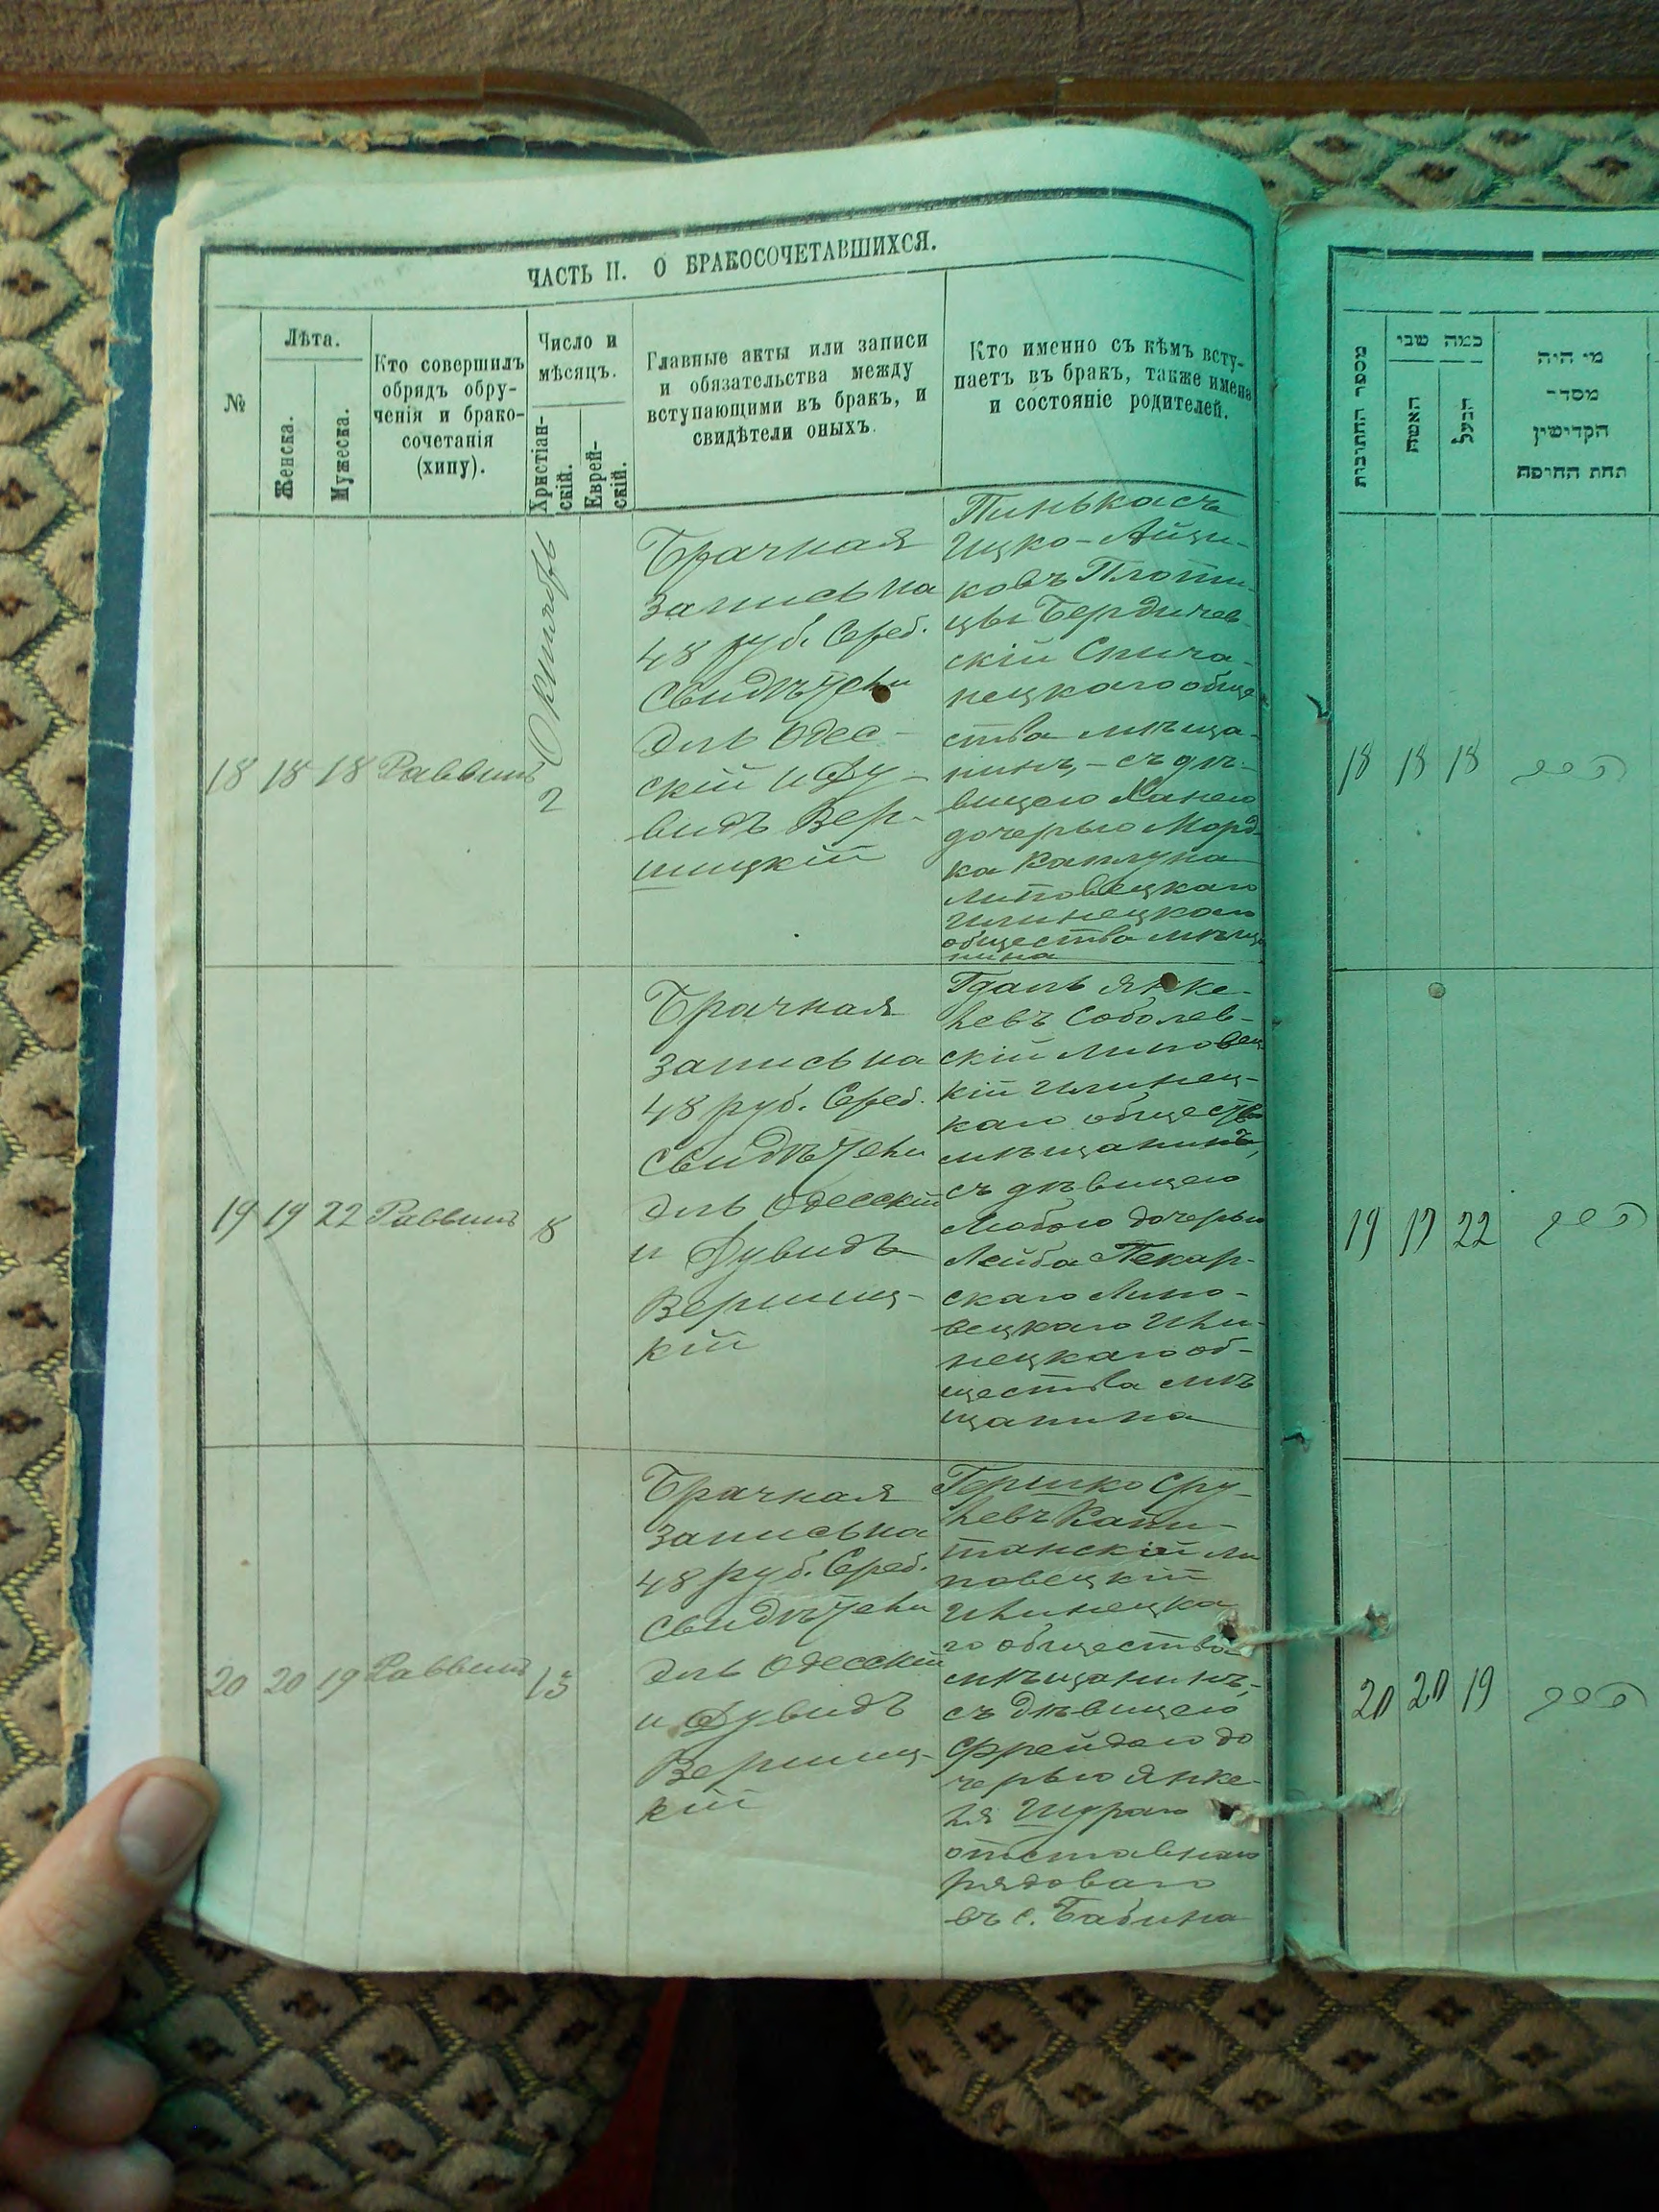 ЧАСТЬ II. О БРАКОСОЧЕТАВШИХСЯ.
№
Лѣта.
Женска.
Мужеска.
Кто совершилъ
обрядъ обру-
ченія и брако-
сочетанія
(хипу).
Число и
мѣсяцъ.
Христіан-
скій.
Еврей-
скій.
Главные акты или записи
и обязательства между
вступающими въ бракъ, и
свидѣтели оныхъ.
Кто именно съ кѣмъ всту-
паетъ въ бракъ, также имена
и состояніе родителей.
18 18 18 Раввинъ
Октябрь
2
Брачная
запись на
48 руб. Сереб.
Свидѣтели
Эль Одес-
скій и Ду-
видъ Вер-
шицкій
Пинькасъ
Ицко-Айзи-
ковъ Плоти-
цы Бердичев-
скій Спича-
нецкаго обще
ства мѣща-
нинъ, - съ дѣ-
вицею Ханею
дочерью Морд
ка Каплуна
Липовецкаго
Илинецкаго
общества мѣща
нина
19 19 22 Раввинъ
8
Брачная
запись на
48 руб. Сереб.
Свидѣтели
Эль Одесскій
и Дувидъ
Вершиц-
кій
Гдаль Янке-
левъ Соболев-
скій Липовец
кій Илинец-
каго общества
мѣщанинъ,
съ дѣвицею
Любою дочерью
Лейба Пекар-
скаго Липо-
вецкаго Или-
нецкаго об-
щества мѣ
щанина
20 20 19 Раввинъ
15
Брачная
запись на
48 руб. Сереб.
Свидѣтели
Эль Одесскій
и Дувидъ
Вершиц-
кій
Гершко Сру-
левъ Капи-
танскій Ли
повецкій
Илинецка
го общества
мѣщанинъ,-
съ дѣвицею
Фрейдою до
черью Янке-
ля
отставнаго
рядоваго
въ с. Бабина
מספר החתונות
כמה שני
האשה
הבעל
מי היה
מסדר
הקדישין
תחת החופה
18 18 18
19 19 22
20 20 19